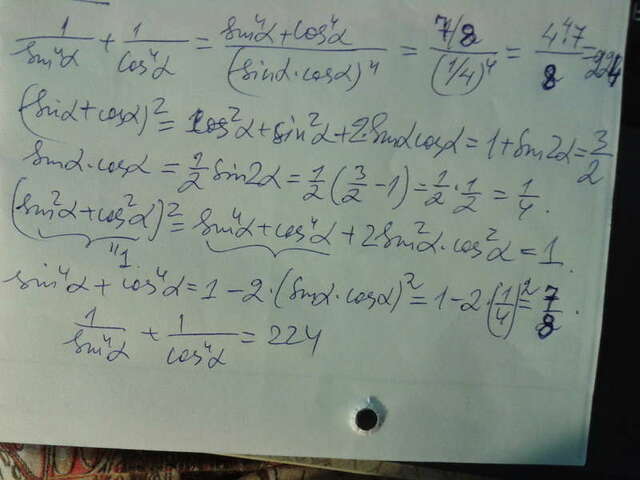 1/sin⁴α + 1/cos⁴α = (sin⁴α + cos⁴α)/(sinα·cosα)⁴ = (7/8)/(1/4)⁴ = 4⁴·7/8 = 224
(sinα + cosα)² = cos²α + sin²α + 2·sinα cosα = 1 + sin2α = 3/2
sinα·cosα = 1/2 sin2α = 1/2 (3/2 − 1) = 1/2 · 1/2 = 1/4.
(sin²α + cos²α)² = sin⁴α + cos⁴α + 2sin²α·cos²α = 1.
"1.
sin⁴α + cos⁴α = 1 − 2·(sinα·cosα)² = 1 − 2·(1/4)² = 7/8.
1/sin⁴α + 1/cos⁴α = 224